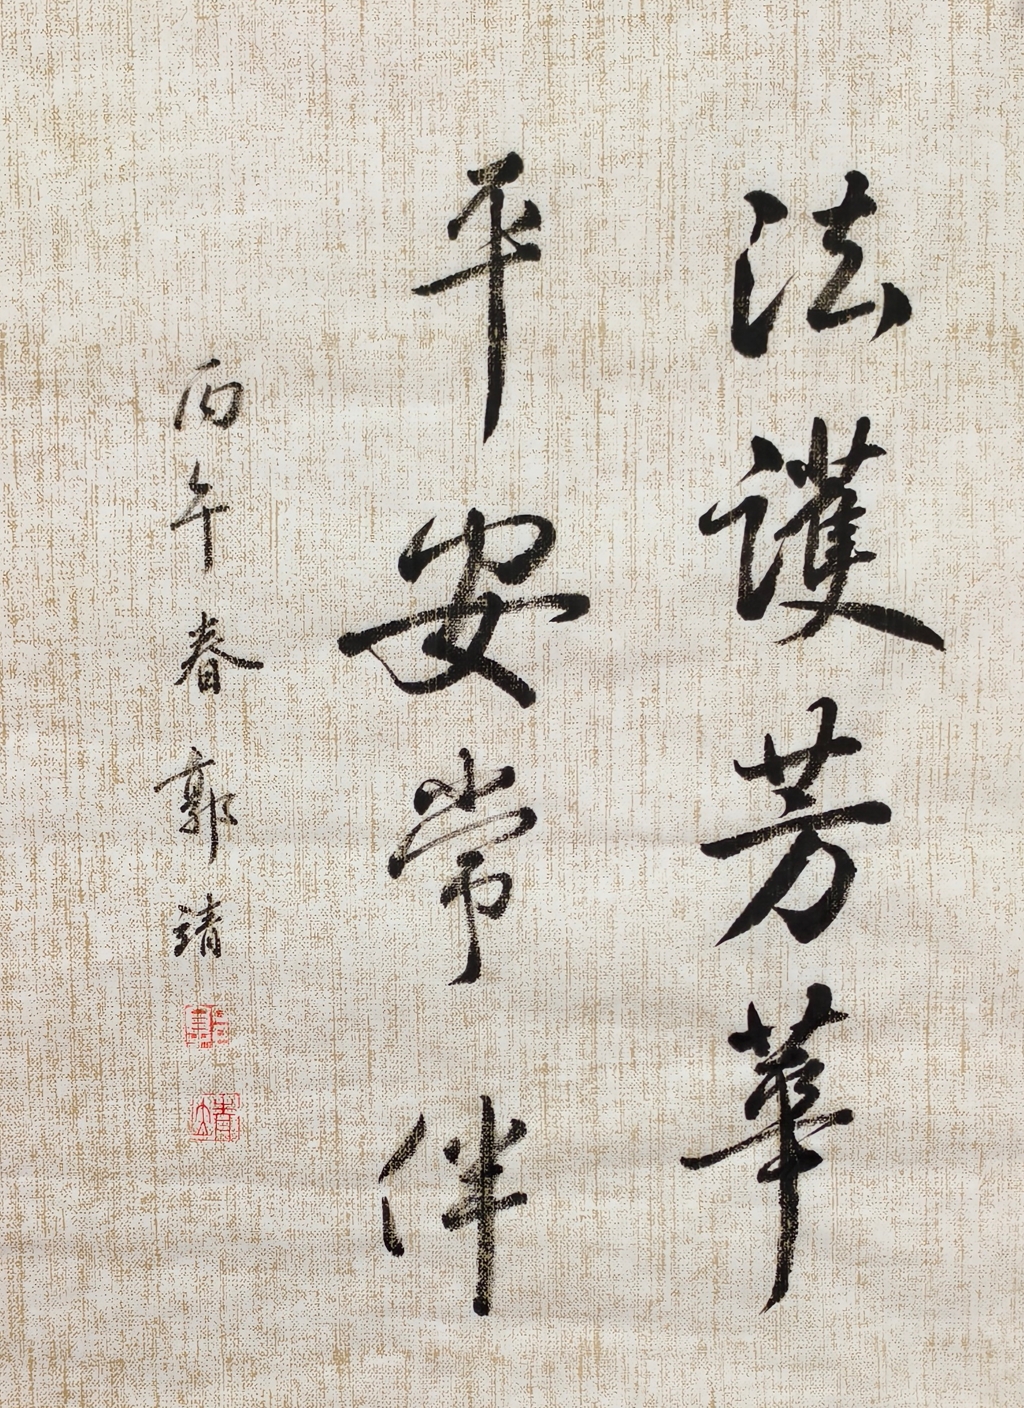 法護芳華
平安常伴
丙午春郭靖